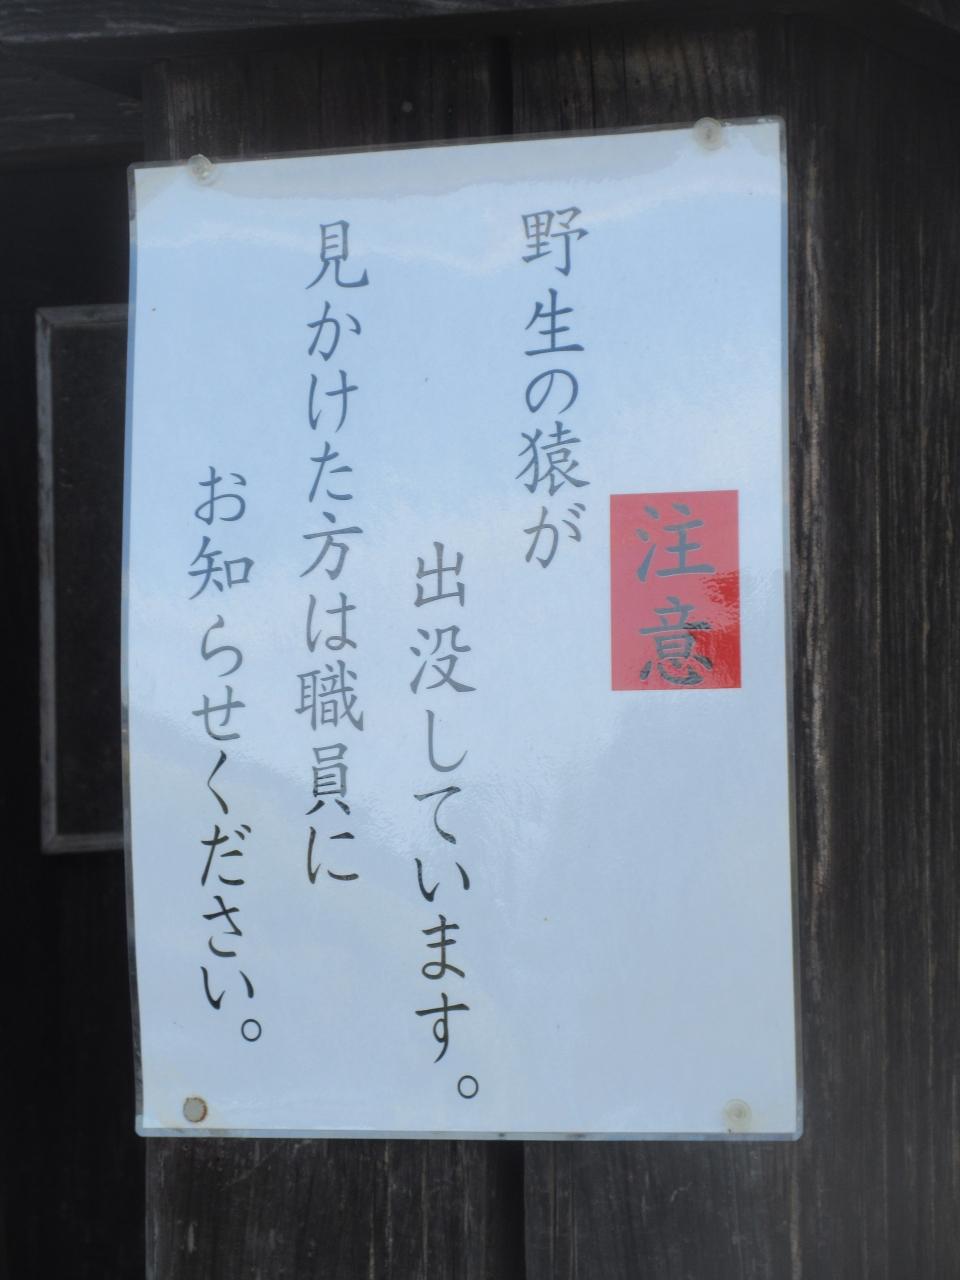 注意
野生の猿が
出没しています。
見かけた方は職員に
お知らせください。